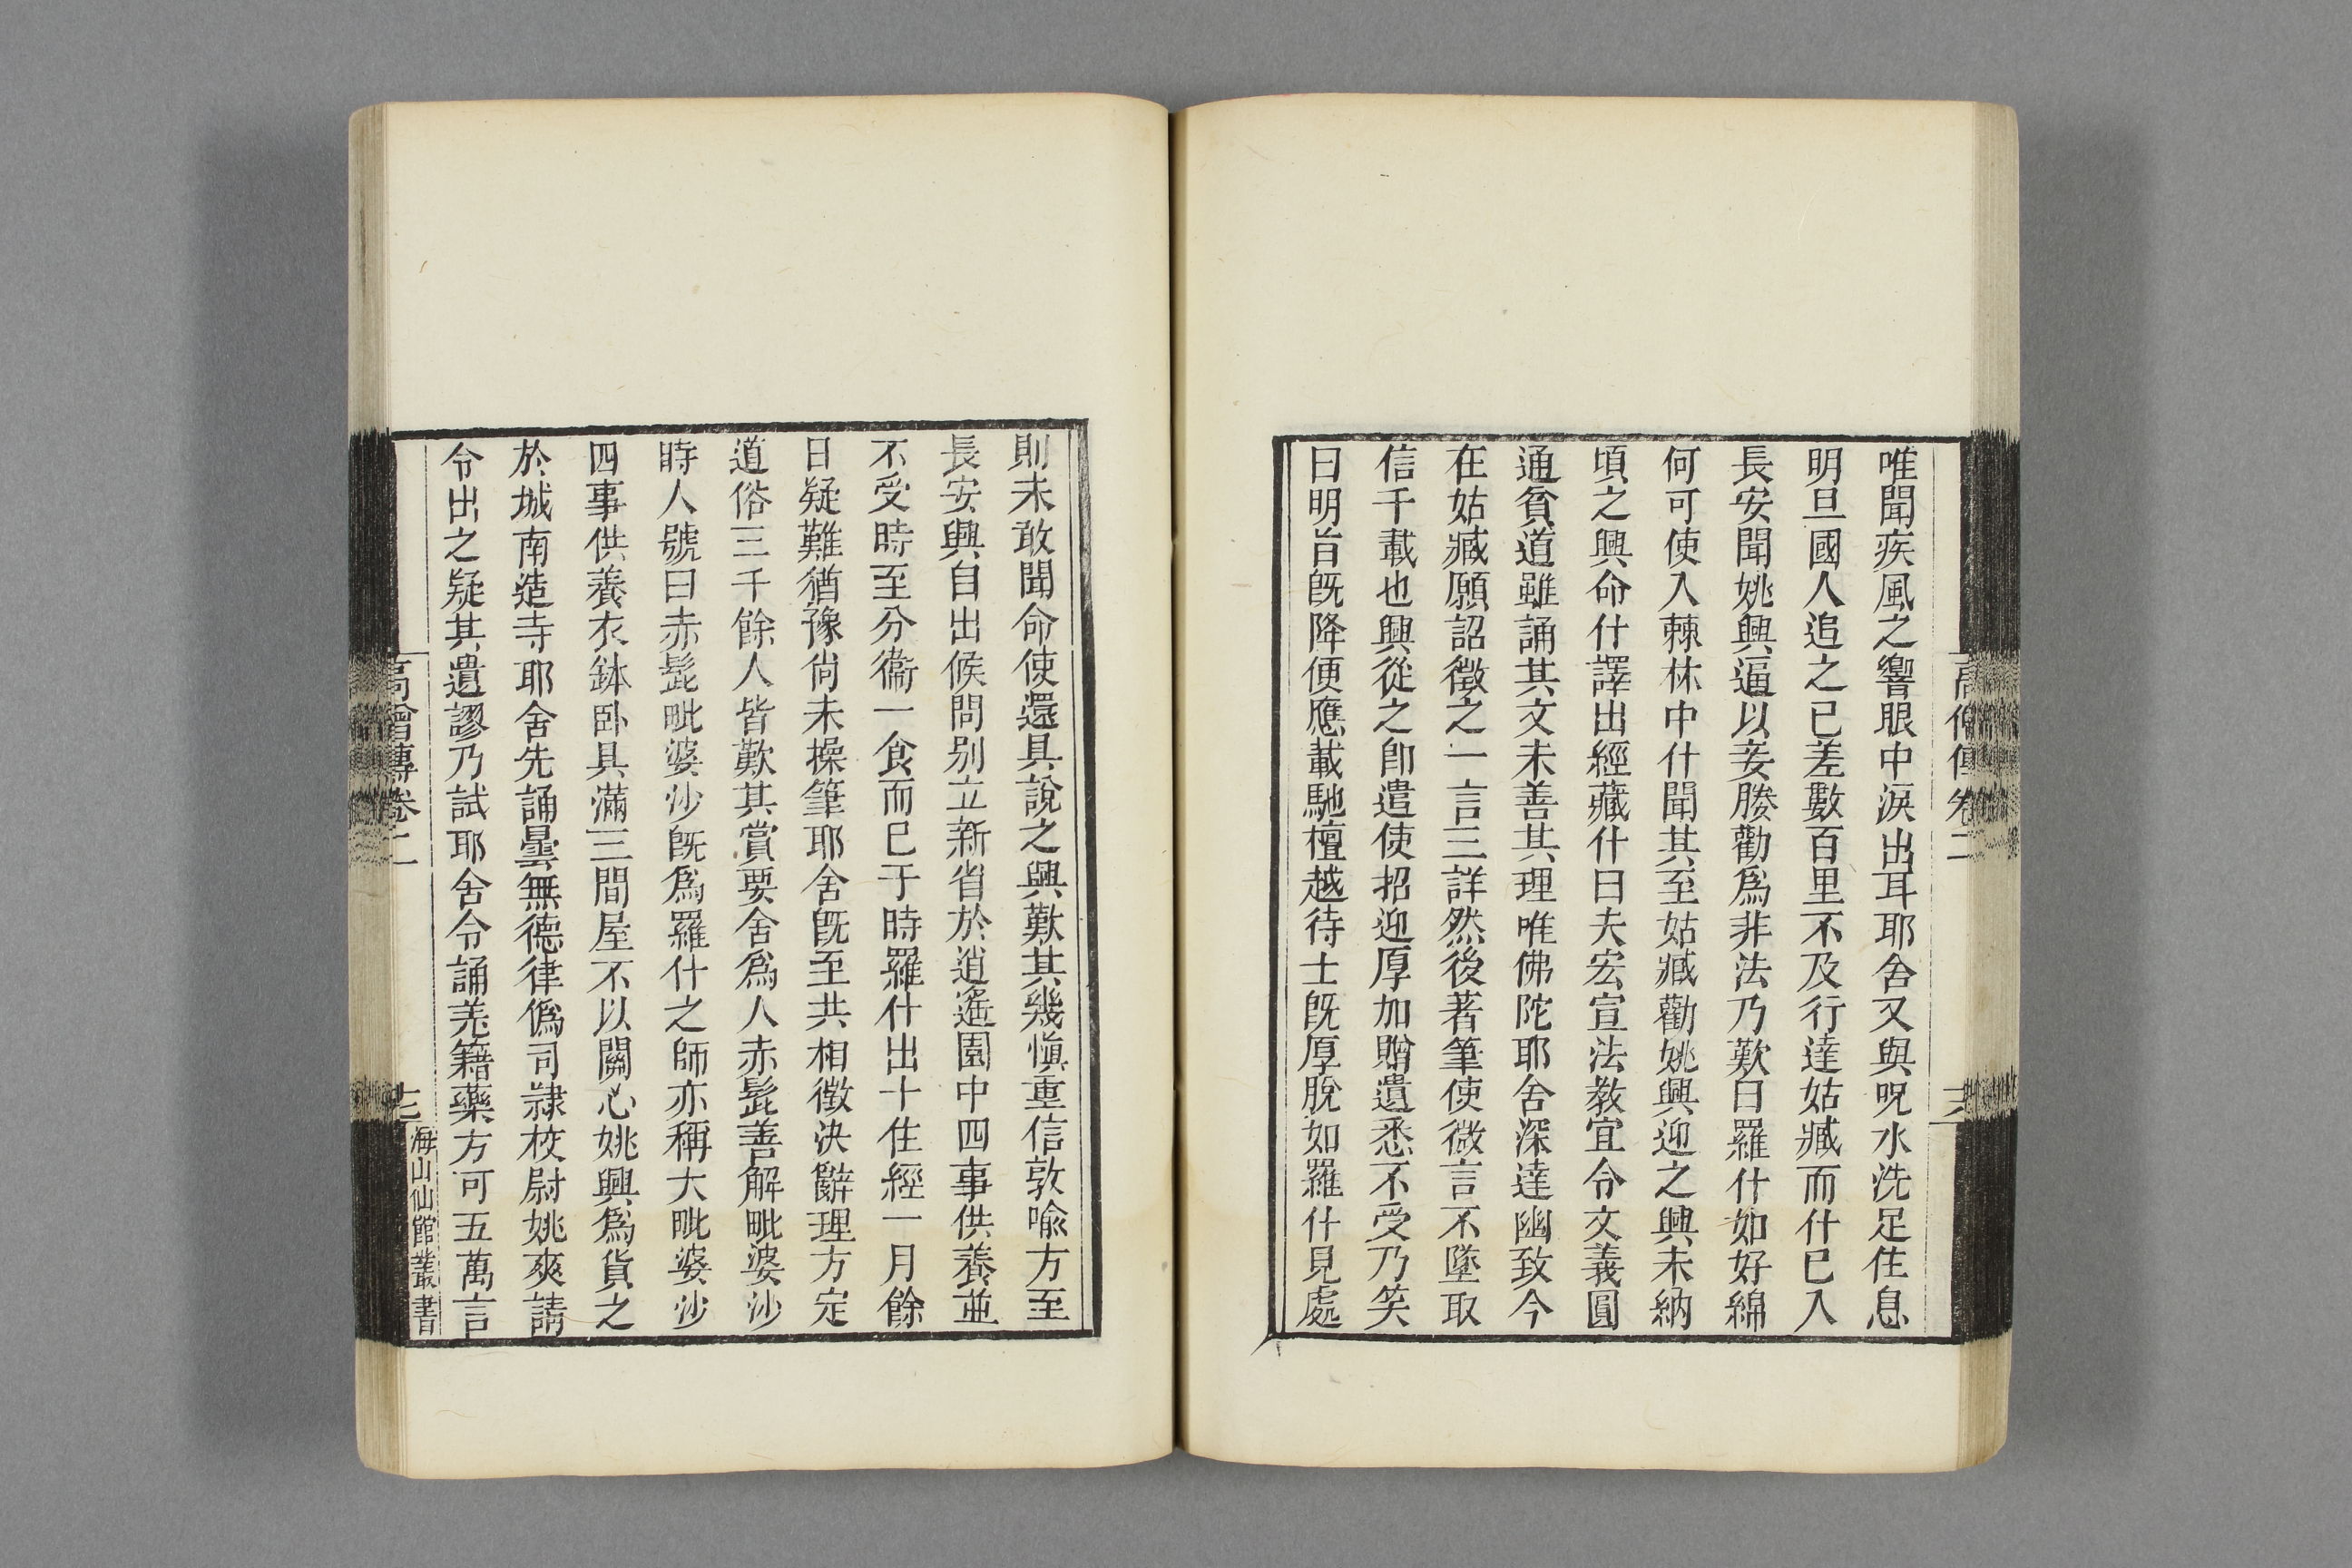 高僧傳卷二
十六
唯聞疾風之響眼中淚出耳耶舍又與呪水洗足住息
明旦國人追之已差數百里不及行達姑臧而什已入
長安聞姚興逼以妾媵勸爲非法乃歎曰羅什如好綿
何可使入棘林中什聞其至姑臧勸姚興迎之興未納
頃之興命什譯出經藏什曰夫宏宣法教宜令文義圓
通貧道雖誦其文未善其理唯佛陀耶舍深達幽致今
在姑臧願詔徵之一言三詳然後著筆使微言不墜取
信千載也興從之卽遣使招迎厚加贈遺悉不受乃笑
曰明旨旣降便應載馳檀越待士旣厚脫如羅什見處
則未敢聞命使還具說之興歎其幾愼重信敦喩方至
長安興自出候問別立新省於逍遙園中四事供養並
不受時至分衞一食而已于時羅什出十住經一月餘
日疑難猶豫尙未操筆耶舍旣至共相徵決辭理方定
道俗三千餘人皆歎其賞要舍爲人赤髭善解毗婆沙
時人號曰赤髭毗婆沙旣爲羅什之師亦稱大毗婆沙
四事供養衣鉢臥具滿三間屋不以關心姚興爲貨之
於城南造寺耶舍先誦曇無德律僞司隸校尉姚爽請
令出之疑其遺謬乃試耶舍令誦羌籍藥方可五萬言
高僧傳卷二
十七
海山仙館叢書